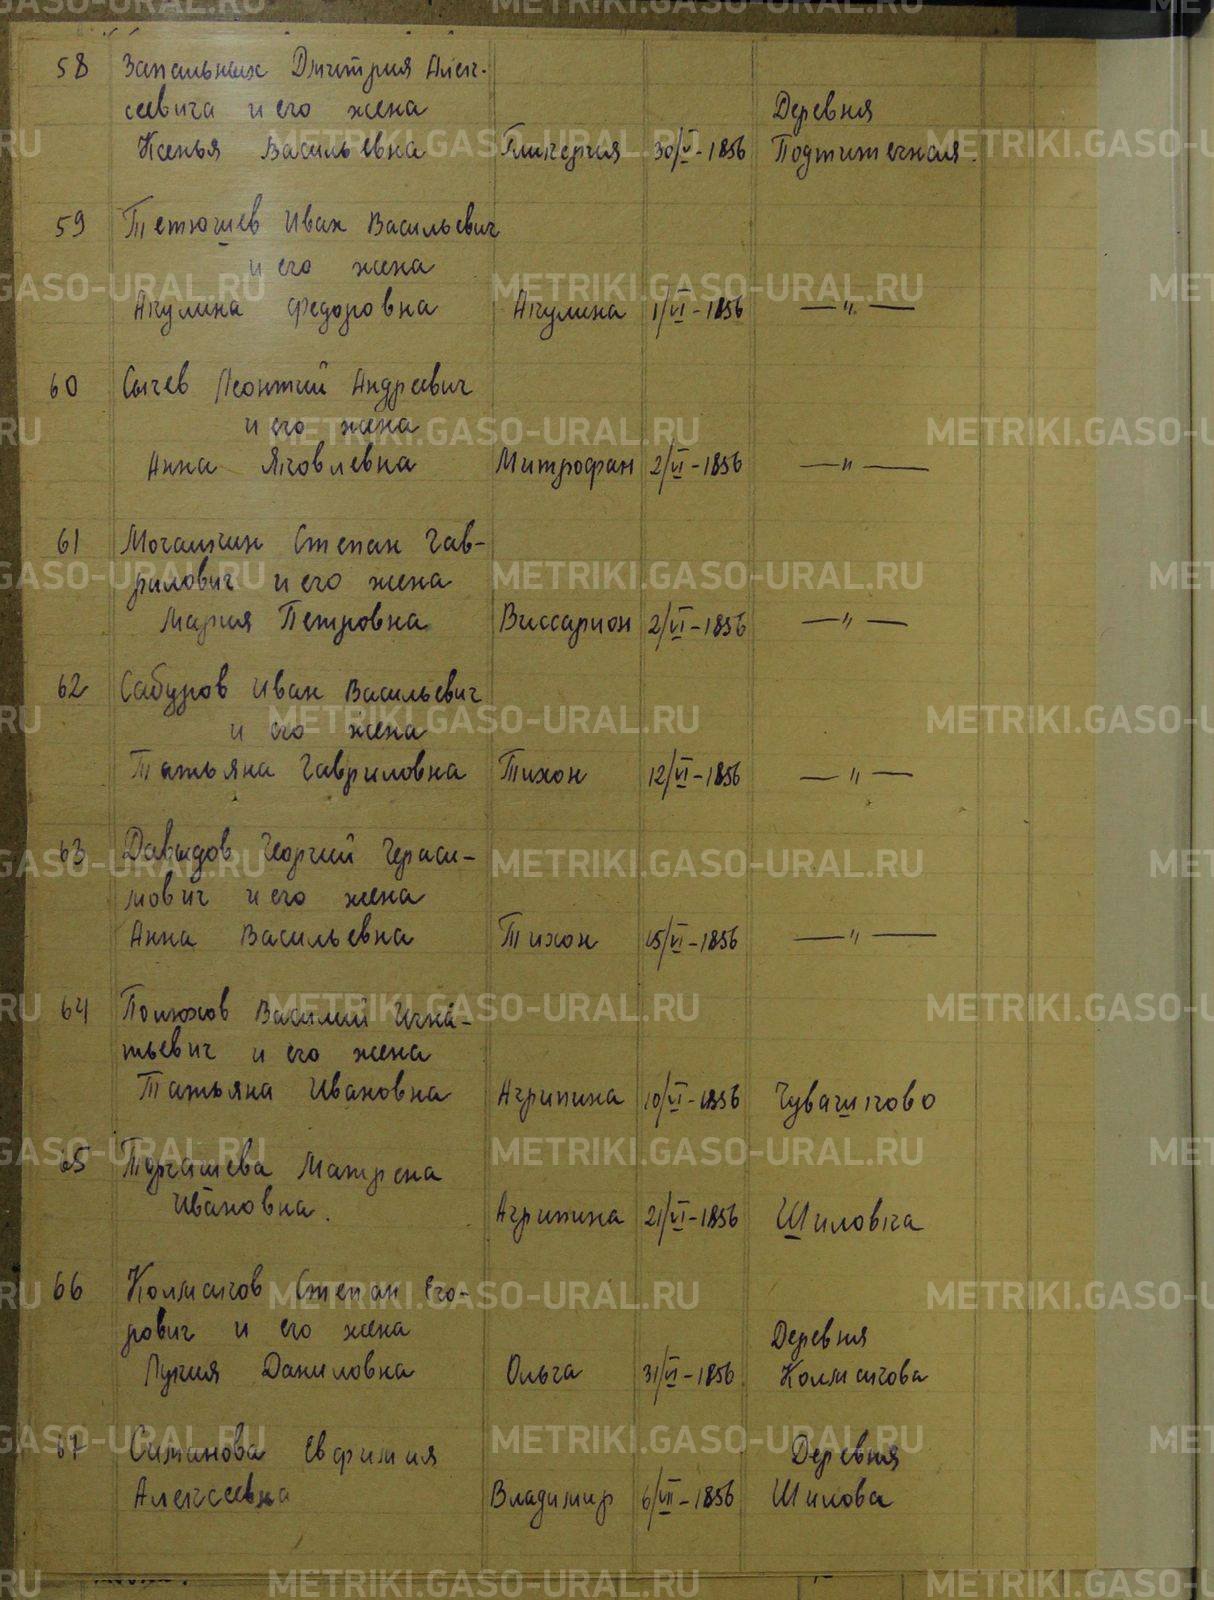 58 Запальных Дмитрия Алек-
сеевича и его жена Деревня
Ксенья Васильевна Гликерия 30/V-1856 Подтитечная.
59 Тетюшев Иван Васильевич
и его жена
Акулина Федоровна Акулина 1/VI-1856 —"—
60 Сычев Леонтий Андреевич
и его жена
Анна Яковлевна Митрофан 2/VI-1856 —"—
61 Мочалкин Степан Гав-
рилович и его жена
Мария Петровна Виссарион 2/VI-1856 —"—
62 Сабуров Иван Васильевич
и его жена
Татьяна Гавриловна Тихон 12/VI-1856 —"—
63 Давыдов Георгий Гераси-
мович и его жена
Анна Васильевна Тихон 15/VI-1856 —"—
64 Полюхов Василий Игна-
тьевич и его жена
Татьяна Ивановна Агрипина 10/VI-1856 Чувашково
65 Торгашева Матрена
Ивановна. Агрипина 21/VI-1856 Шиловка
66 Колмаков Степан Его-
рович и его жена Деревня
Лукия Даниловна Ольга 31/VI-1856 Колмакова
67 Симанова Евфимия Деревня
Алексеевна Владимир 6/VII-1856 Шилова
METRIKI.GASO-URAL.RU